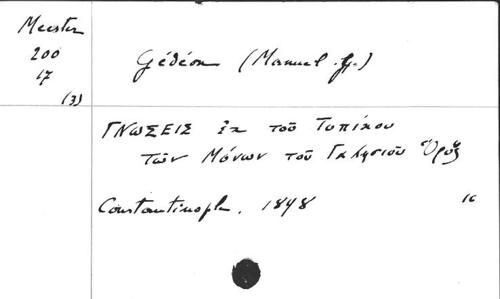 Meester
200
17
(3)
Gédéon (Manuel J.)
ΓΝΩΣΕΙΣ ἐκ τοῦ Τυπίκου
τῶν Μόνων τοῦ Γαλησιοῦ Ὄρους
Constantinople. 1898
16